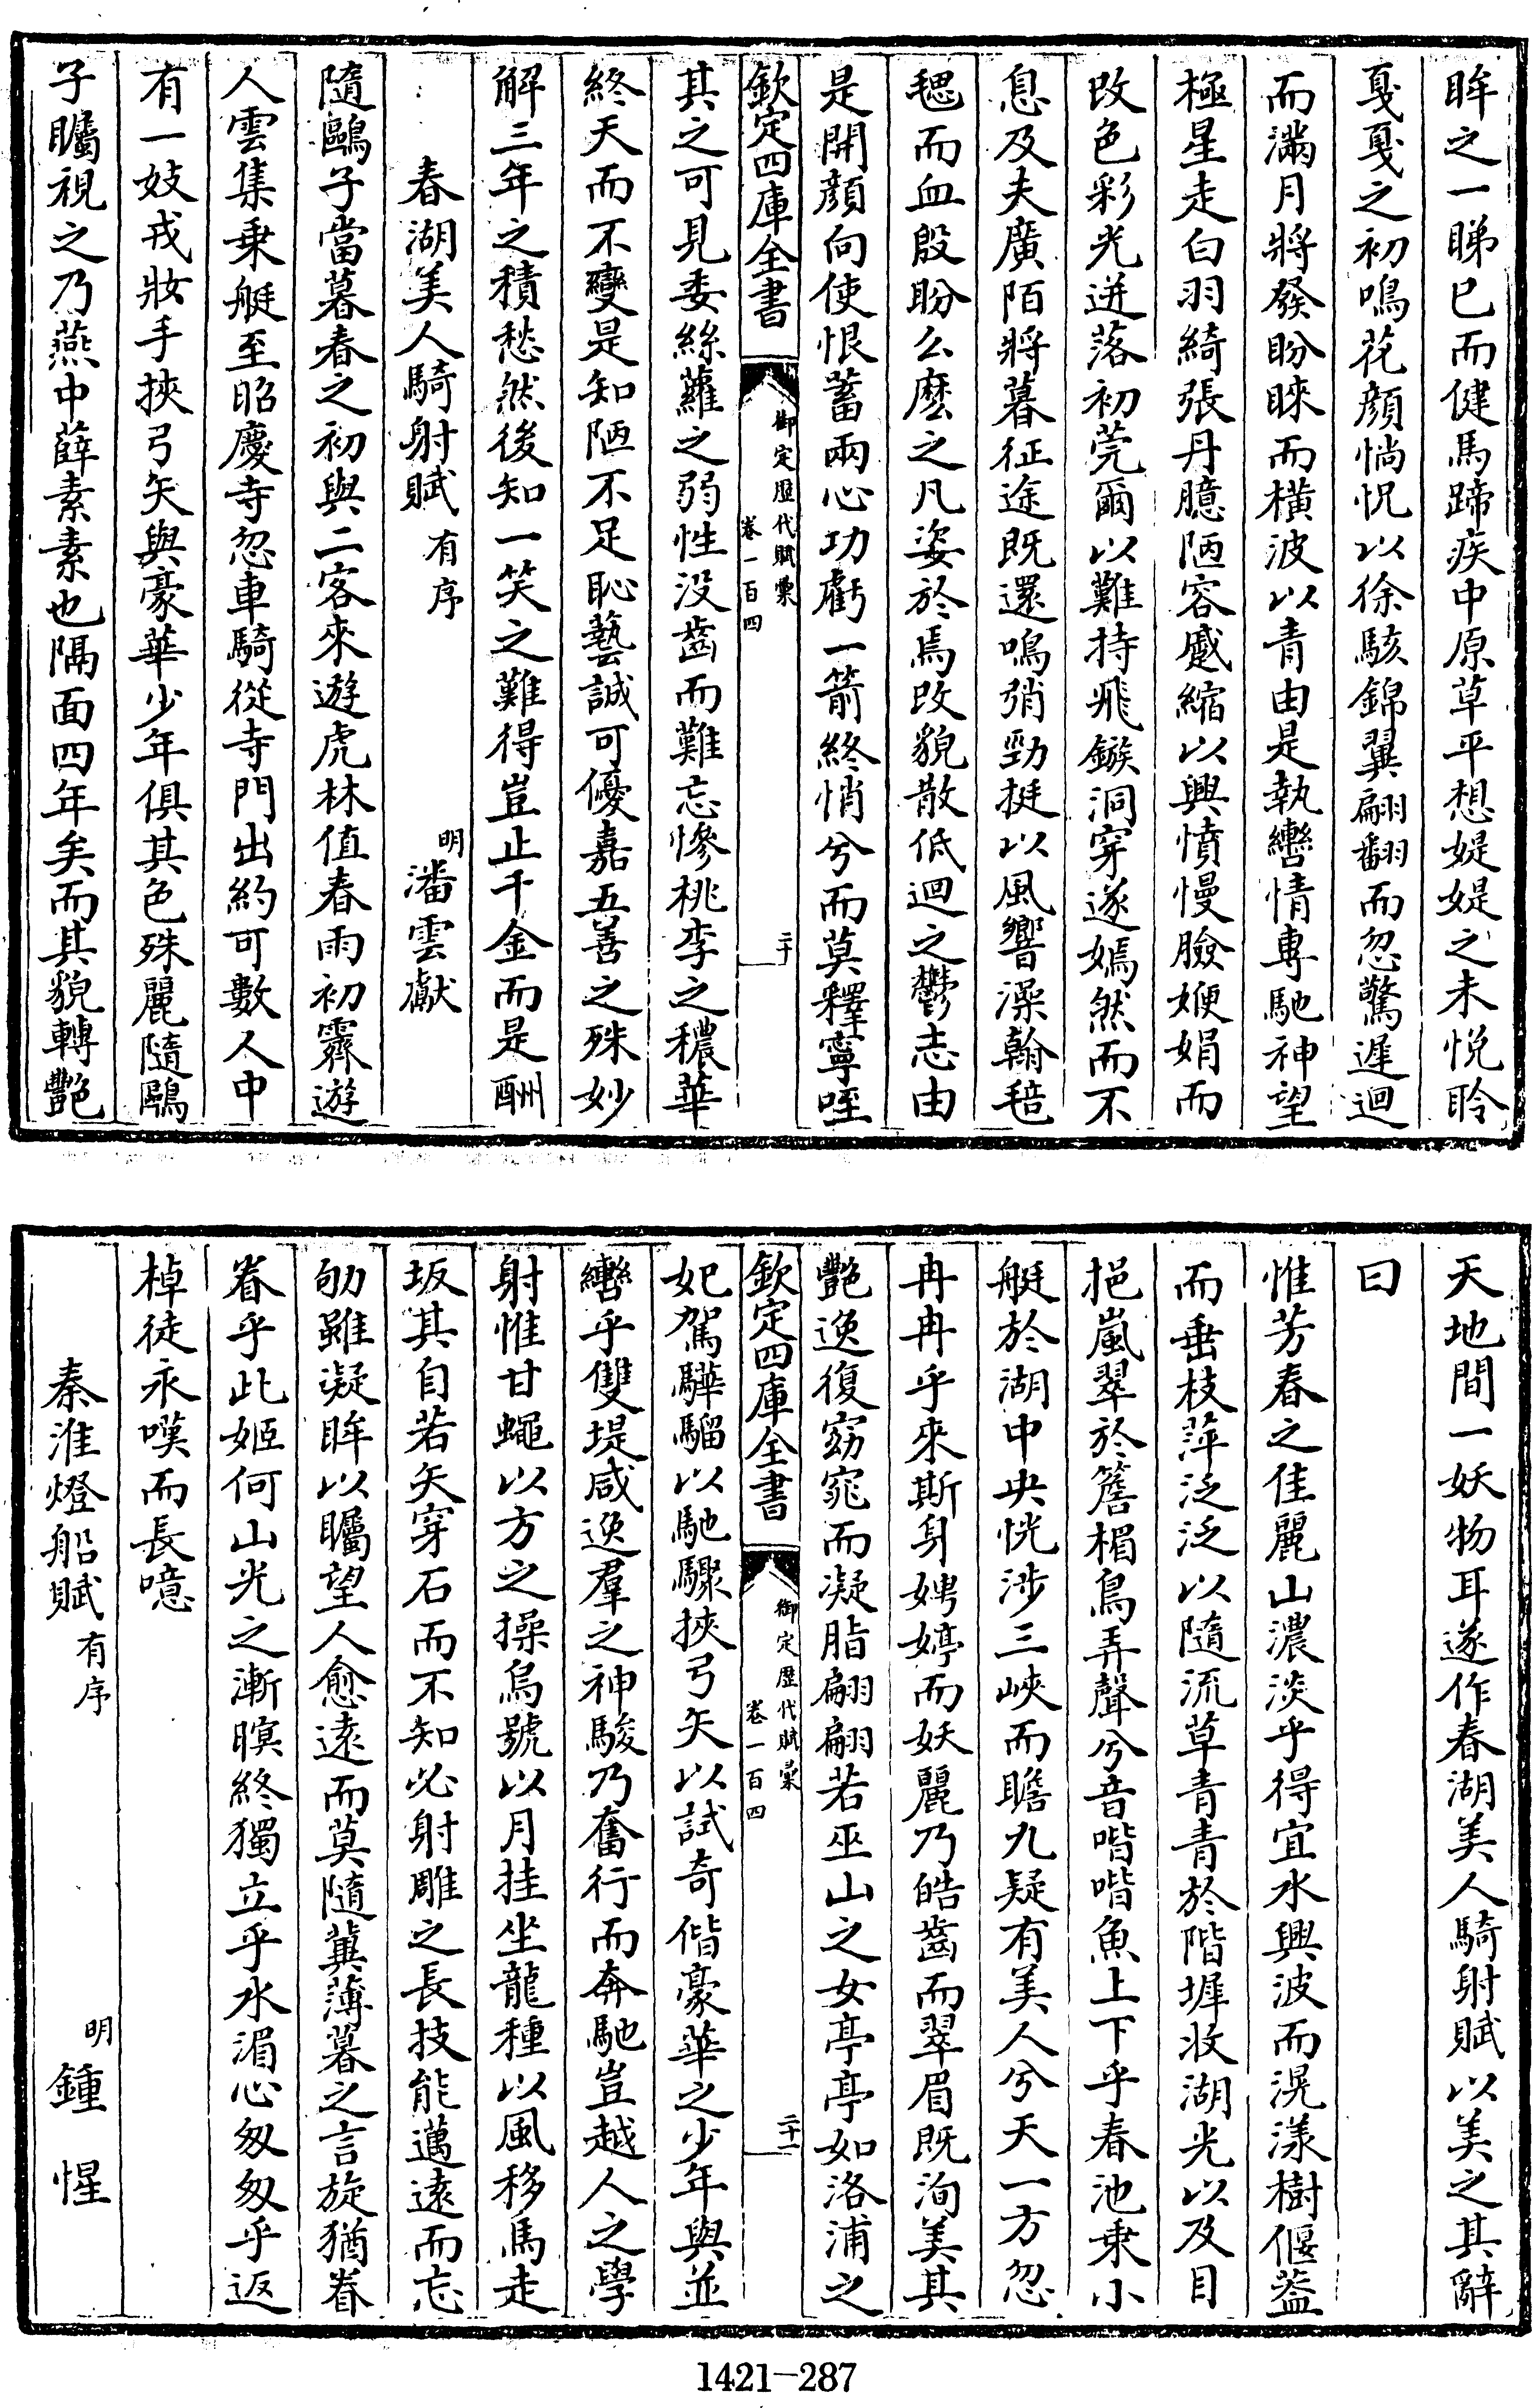 眸之一睇已而健馬蹄疾中原草平想媞媞之未悅聆
戛戛之初鳴花顏惝怳以徐駭錦翼翩翻而忽驚遲迴
而滿月將發盼睞而橫波以青由是執轡情專馳神望
極星走白羽綺張丹臆陋容蹙縮以興憤慢臉㛹娟而
改色彩光迸落初莞爾以難持飛鏃洞穿遂嫣然而不
息及夫廣陌將暮征途既還鳴弰勁挺以風響澡翰毰
毸而血殷盼么麽之凡姿於焉改貌散低迴之鬱志由
是開顏向使恨蓄兩心功虧一箭終悄兮而莫釋寧咥
欽定四庫全書
御定歷代賦彙
卷一百四
二十
其之可見委絲蘿之弱性没齒而難忘慘桃李之穠華
終天而不變是知陋不足恥藝誠可優嘉五善之殊妙
解三年之積愁然後知一笑之難得豈止千金而是酬
春湖美人騎射賦 有序 明潘雲獻
隨鷗子當暮春之初與二客來遊虎林值春雨初霽遊
人雲集乗艇至昭慶寺忽車騎從寺門出約可數人中
有一妓戎妝手挾弓矢與豪華少年俱其色殊麗隨鷗
子矚視之乃燕中薛素素也隔面四年矣而其貌轉艷
天地間一妖物耳遂作春湖美人騎射賦以美之其辭
曰
惟芳春之佳麗山濃淡乎得宜水興波而滉漾樹偃葢
而垂枝萍泛泛以隨流草青青於階墀收湖光以及目
挹嵐翠於簷楣鳥弄聲兮音喈喈魚上下乎春池乗小
艇於湖中央恍涉三峽而瞻九疑有美人兮天一方忽
冉冉乎來斯身娉婷而妖麗乃皓齒而翠眉既洵美其
艷逸復窈窕而凝脂翩翩若巫山之女亭亭如洛浦之
欽定四庫全書
御定歷代賦彙
卷一百四
二十一
妃駕驊騮以馳驟挾弓矢以試奇偕豪華之少年與並
轡乎雙堤咸逸羣之神駿乃奮行而奔馳豈越人之學
射惟甘蠅以方之操烏號以月挂坐龍種以風移馬走
坂其自若矢穿石而不知必射雕之長技能邁遠而忘
劬雖凝眸以矚望人愈遠而莫隨冀薄暮之言旋猶眷
眷乎此姬何山光之漸暝終獨立乎水湄心匆匆乎返
棹徒永嘆而長噫
秦淮燈船賦 有序 明鍾惺
1421-287